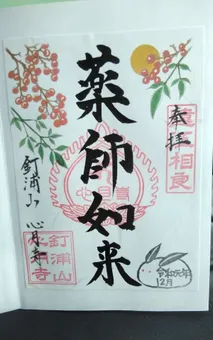 奉拝
薬師如来
釘浦山
心月寺
令和元年
12月
釘浦山